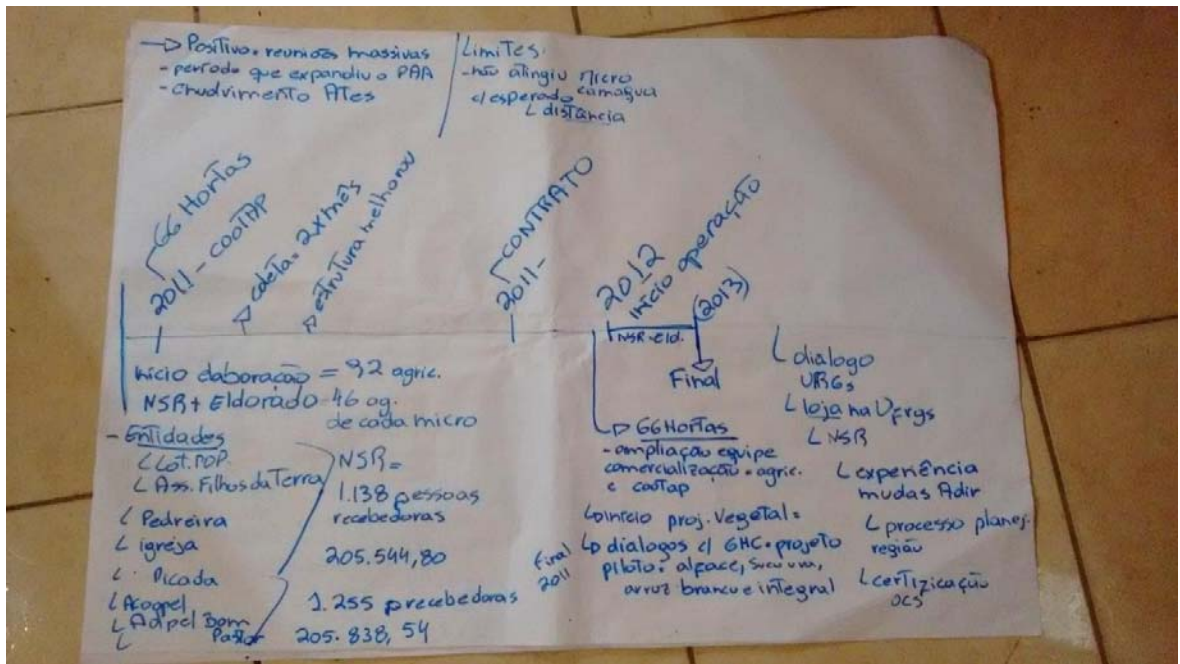 → Positivo = reuniões massivas
- período que expandiu o PAA
- envolvimento Ates
Limites:
- não atingiu micro
camaquã
c/ esperado
L distância
GG Hortas
2011 - COOTAP
coleta = 2x mês
estrutura melhorou
CONTRATO
2011 -
2012
início operação
(2013)
NSR - Eld.
Final
início elaboração = 92 agric.
NSR + Eldorado - 46 ag.
de cada micro
- Entidades
L Lot. POP.
L Ass. Filhos da Terra
L Pedreira
L igreja
L Picada
L Acogpel
L Adpel Bom
L Pastor
NSR =
1.138 pessoas
recebedoras
205.544,80
1.255 p recebedoras
205.838,54
Final
2011
GG HORTAS
- ampliação equipe
comercialização = agric.
e cootap
início proj. Vegetal =
dialogos c/ GHC = projeto
piloto: alface, suco uva,
arroz branco e integral
L dialogo
URGs
L loja na Ufrgs
L NSR
L experiência
mudas Adir
L processo planej.
região
L certificação
OCS